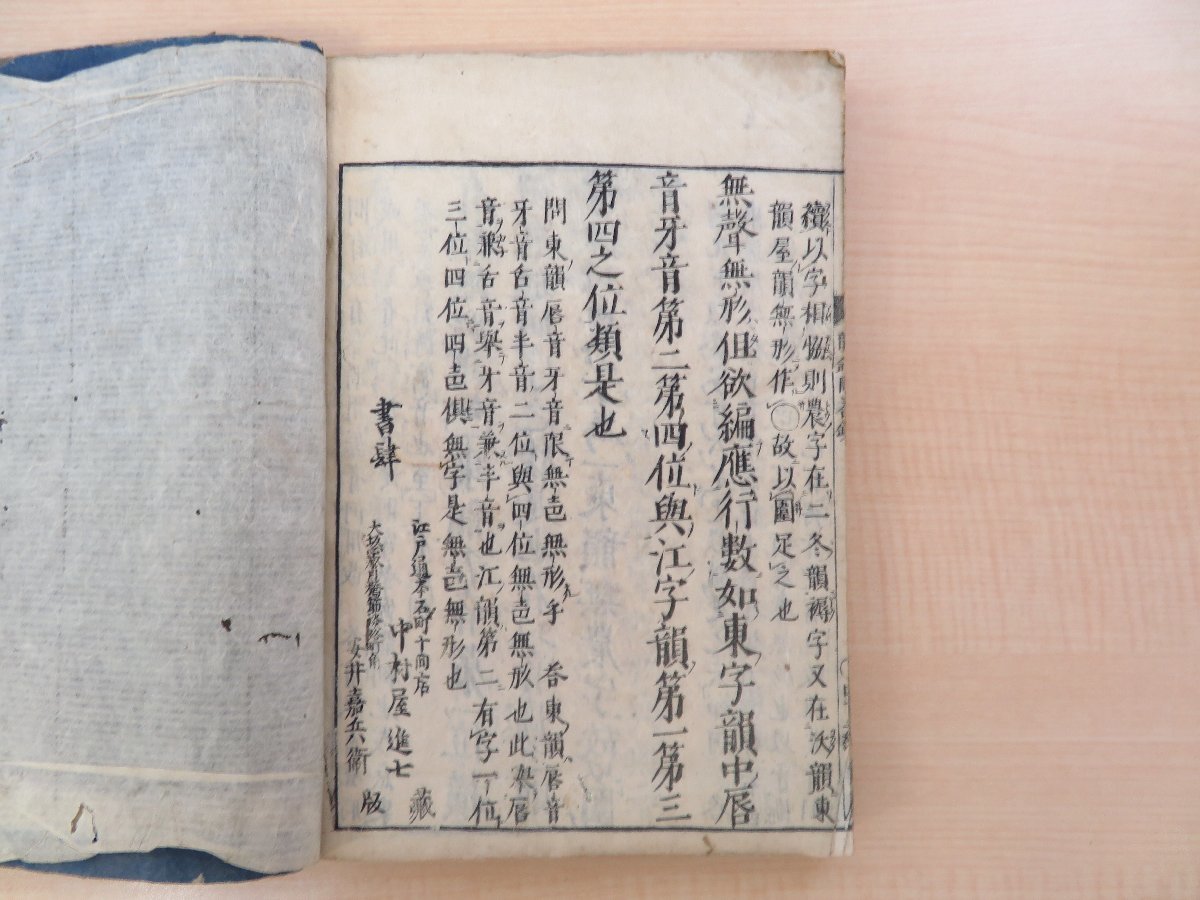 續以字相協則農字在二冬韻褥字又在沃韻東
韻屋韻無形作〇故以圍足之也
無聲無形但欲編應行數如東字韻中唇
音牙音第二第四位與江字韻第一第三
第四之位類是也
問東韻唇音牙音限無㐌無形乎 答東韻唇音
牙音舌音半音二位與四位無㐌無形也此举唇
音兼舌音舉牙音兼半音也江韻第二有字一位
三位四位四㐌俱無字是無㐌無形也
書肆
江戸通本石町十間店
中村屋進七
藏
大坂心斎橋筋
町角
井嘉兵衛
版